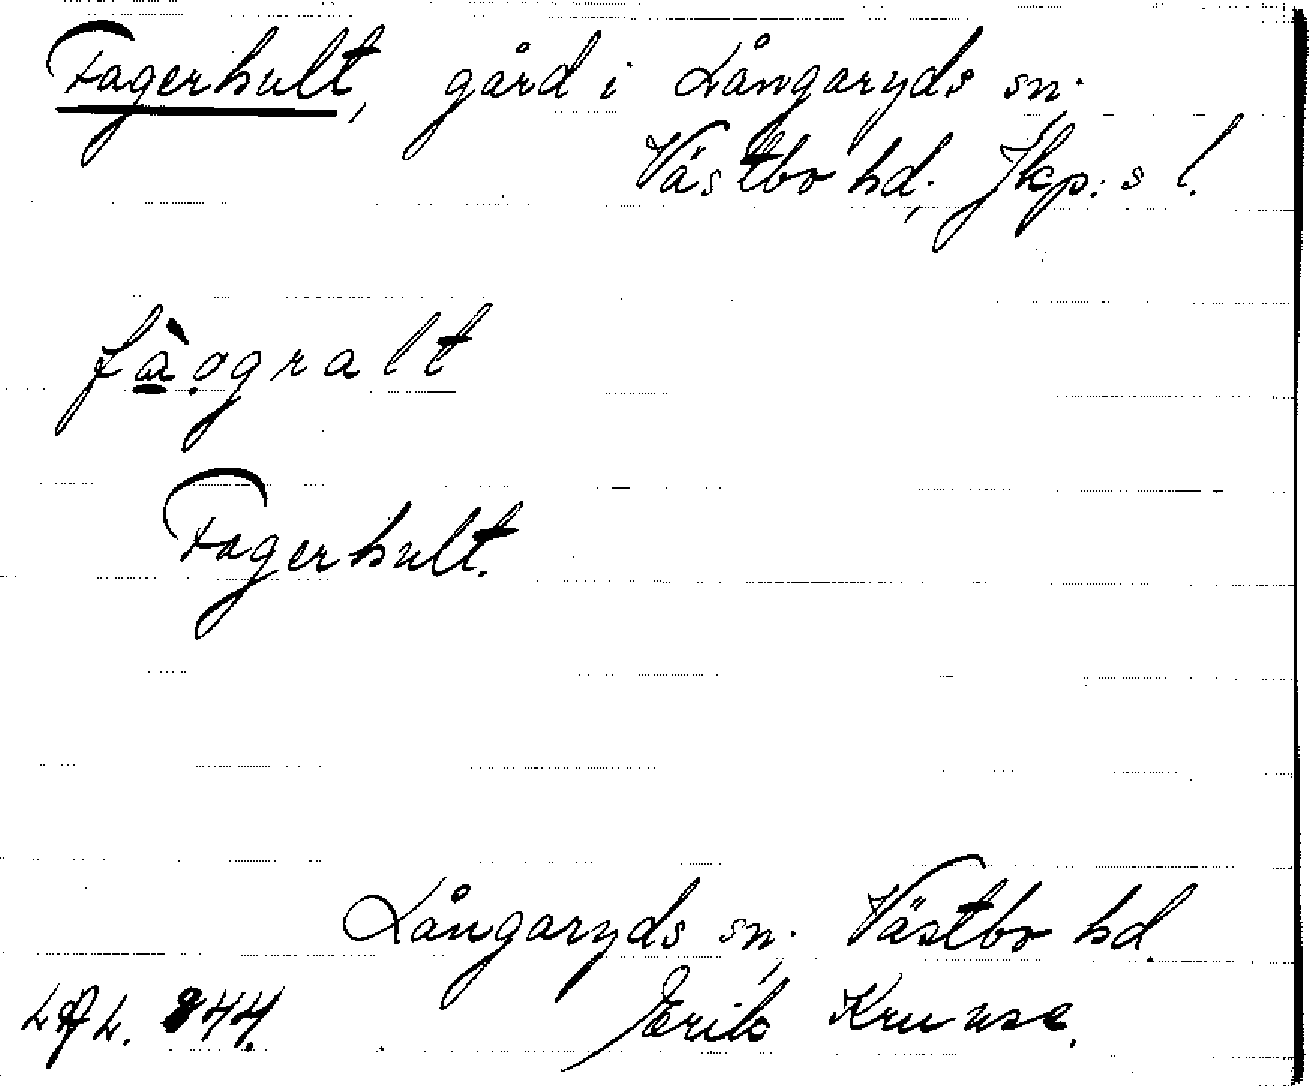 Fagerhult, gård i Långaryds sn.
Västbo hd, Jkp:s l.
fà̱ǫgralt
Fagerhult.
Långaryds sn, Västbo hd.
Erik Kruuse.